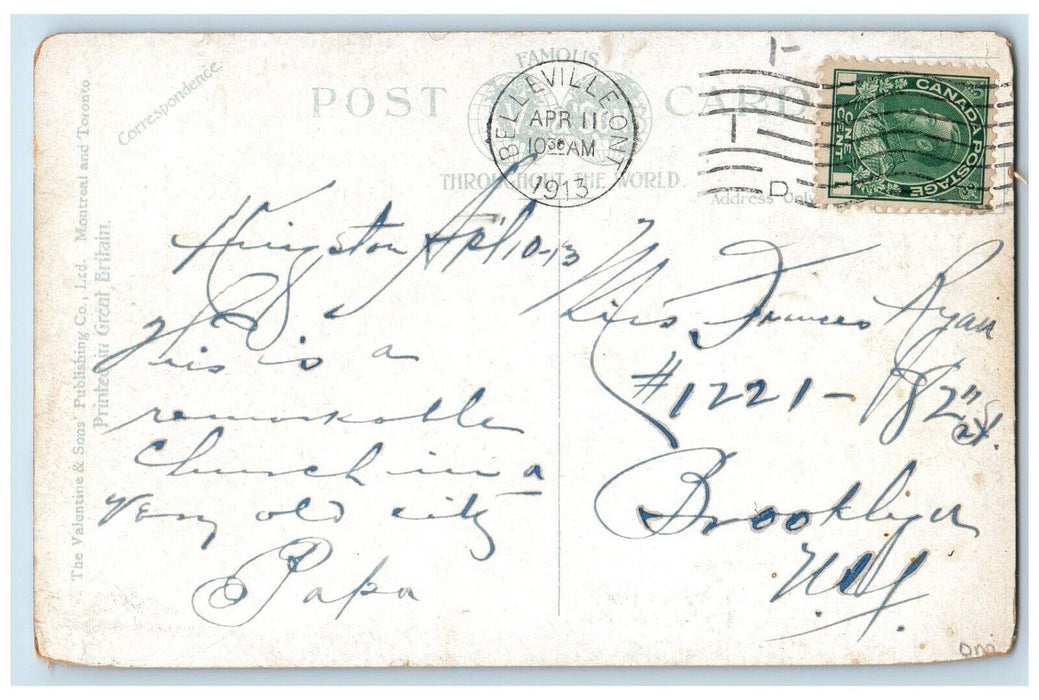 Correspondence.
POST CARD
FAMOUS
THROUGHOUT THE WORLD.
Address Only
BELLEVILLE ONT
APR 11
10 30 AM
1913
CANADA POSTAGE
ONE CENT
1 1
The Valentine & Sons' Publishing Co., Ltd. Montreal and Toronto
Printed in Great Britain.
Kingston Ap'l 10-13
This is a
remarkable
Church in a
very old city
Papa
Miss Frances Ryan
#1221-
82nd St.
Brooklyn
N.Y.